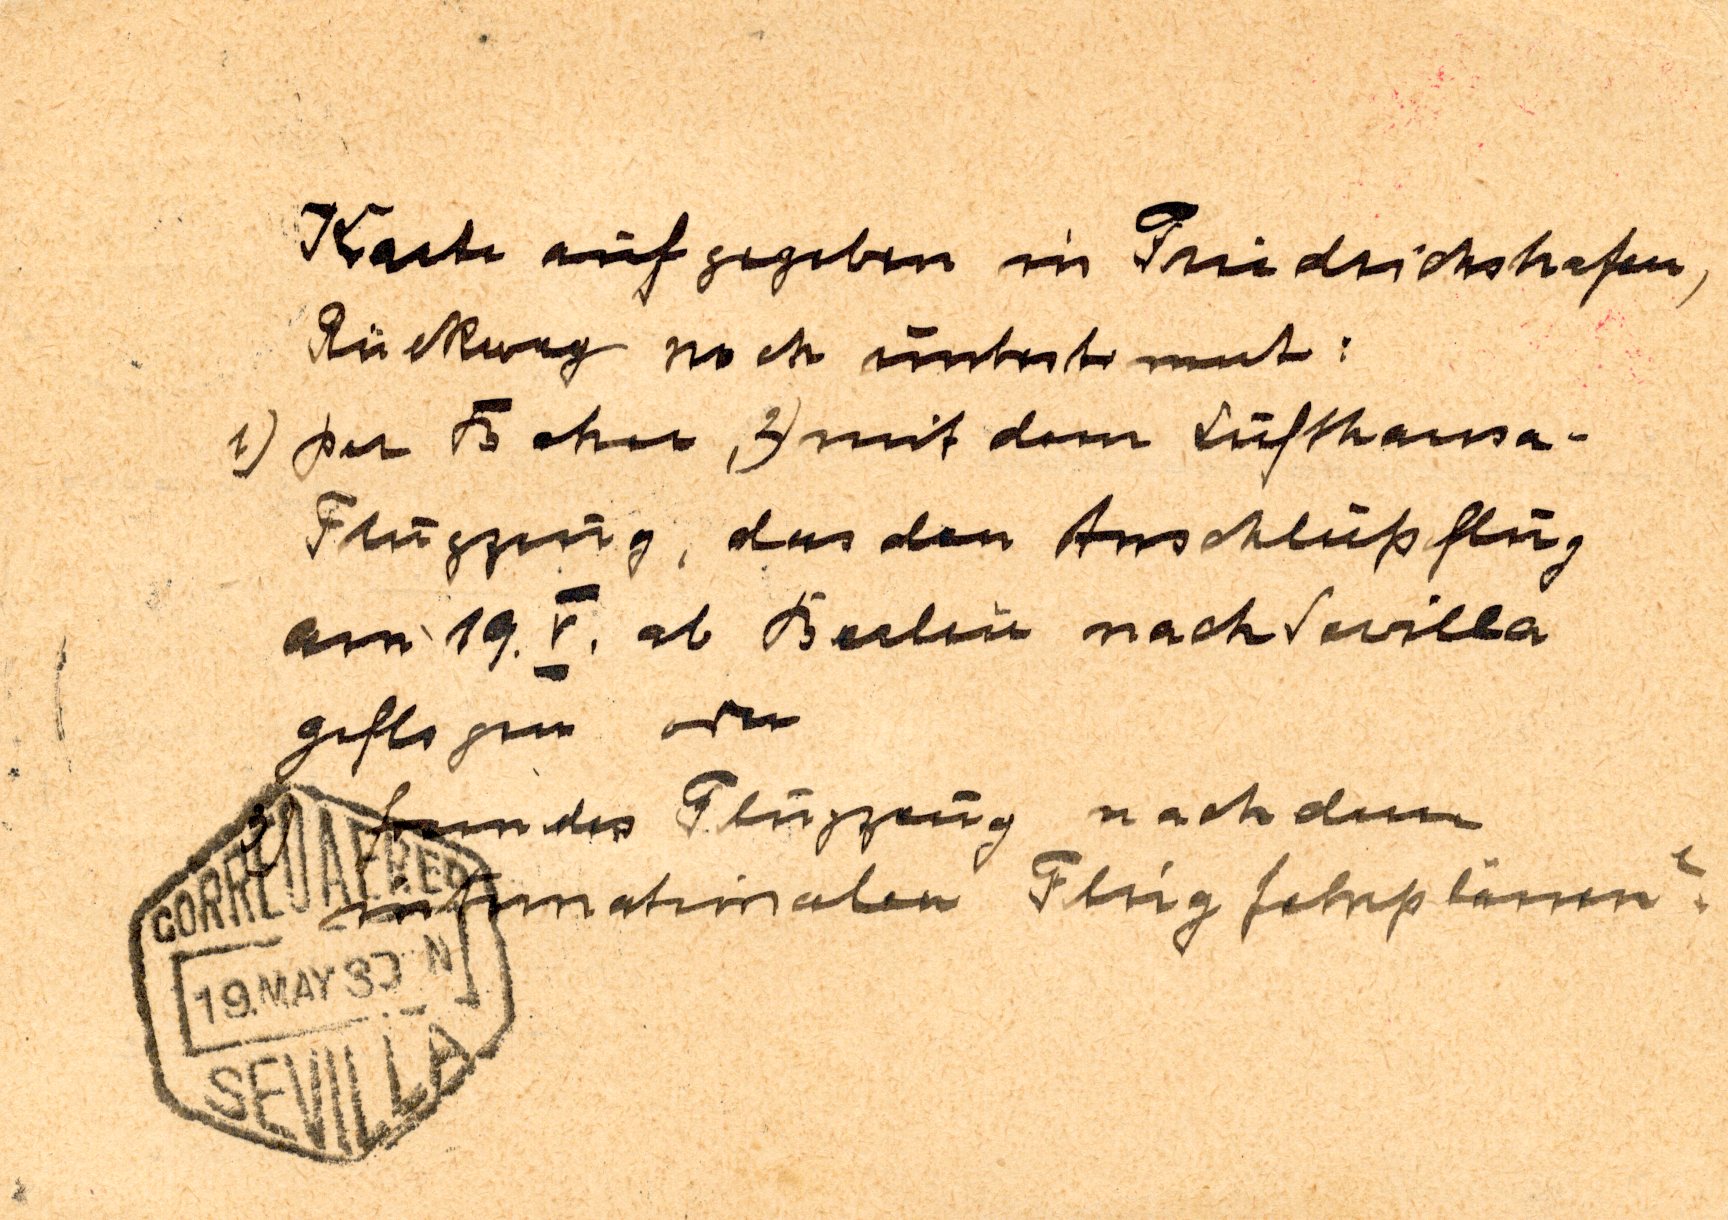 Karte aufgegeben in Friedrichshafen,
Rückweg noch unbestimmt:
1) per Bahn, 2) mit dem Lufthansa-
Flugzeug, das den Anschlußflug
am 19. V. ab Berlin nach Sevilla
geflogen oder
3) fremdes Flugzeug nach dem
internationalen Flugfahrplänen?
CORREO AEREO
19. MAY 30 N
SEVILLA